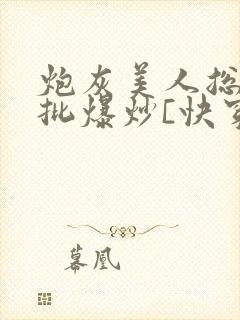 炮灰美人总
批爆炒[快穿
幕凰